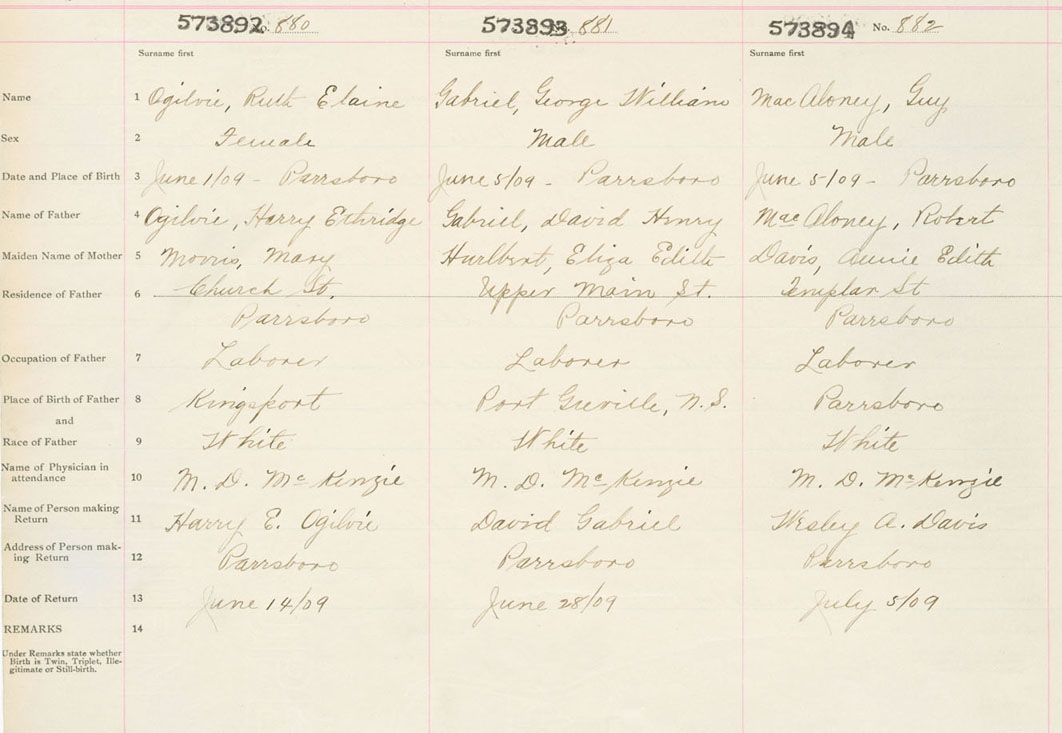 573892 No. 880 573893 No. 881 573894 No. 882
Surname first Surname first Surname first
Name 1 Ogilvie, Ruth Elaine Gabriel, George William MacAloney, Guy
Sex 2 Female Male Male
Date and Place of Birth 3 June 1/09 - Parrsboro June 5/09 - Parrsboro June 5/09 - Parrsboro
Name of Father 4 Ogilvie, Harry Ethridge Gabriel, David Henry MacAloney, Robert
Maiden Name of Mother 5 Morris, Mary Hurlbert, Eliza Edith Davis, Annie Edith
Residence of Father 6 Church St. Upper Main St. Templar St
Parrsboro Parrsboro Parrsboro
Occupation of Father 7 Laborer Laborer Laborer
Place of Birth of Father 8 Kingsport Port Greville, N.S. Parrsboro
and
Race of Father 9 White White White
Name of Physician in
attendance 10 M. D. McKenzie M. D. McKenzie M. D. McKenzie
Name of Person making
Return 11 Harry E. Ogilvie David Gabriel Wesley A. Davis
Address of Person mak-
ing Return 12 Parrsboro Parrsboro Parrsboro
Date of Return 13 June 14/09 June 28/09 July 5/09
REMARKS 14
Under Remarks state whether
Birth is Twin, Triplet, Ille-
gitimate or Still-birth.